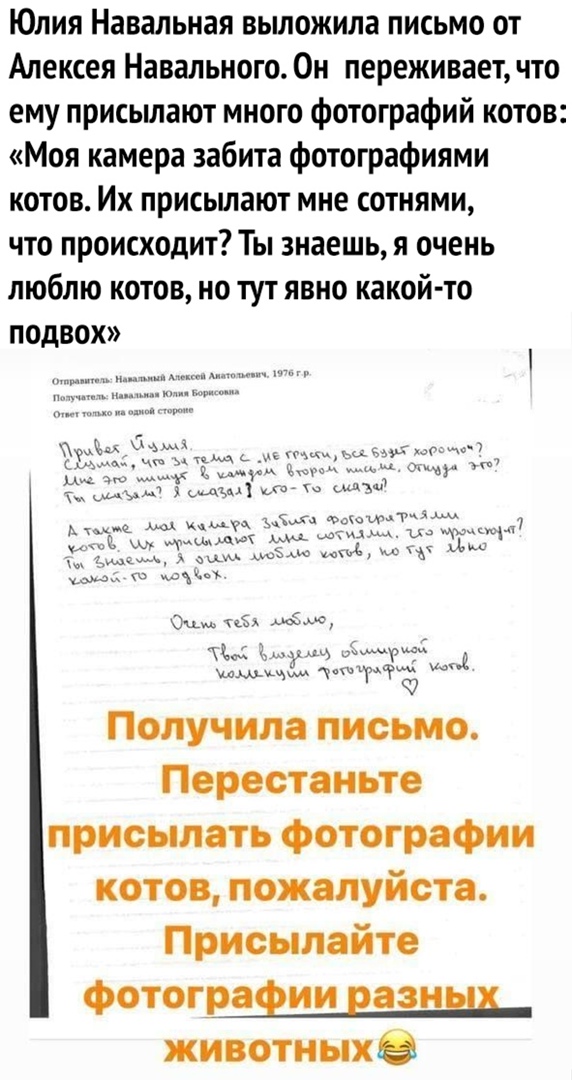 Юлия Навальная выложила письмо от
Алексея Навального. Он переживает, что
ему присылают много фотографий котов:
«Моя камера забита фотографиями
котов. Их присылают мне сотнями,
что происходит? Ты знаешь, я очень
люблю котов, но тут явно какой-то
подвох»
Отправитель: Навальный Алексей Анатольевич, 1976 г.р.
Получатель: Навальная Юлия Борисовна
Ответ только на одной стороне
Привет Юлия.
Слушай, что за тема с „не грусти, всё будет хорошо"?
Мне это пишут в каждом втором письме. Откуда это?
Ты сказала? Я сказал? кто-то сказал?
А также моя камера забита фотографиями
котов. Их присылают мне сотнями. что происходит?
Ты знаешь, я очень люблю котов, но тут явно
какой-то подвох.
Очень тебя люблю,
Твой владелец обширной
коллекции фотографий котов.
♡
Получила письмо.
Перестаньте
присылать фотографии
котов, пожалуйста.
Присылайте
фотографии разных
животных😂